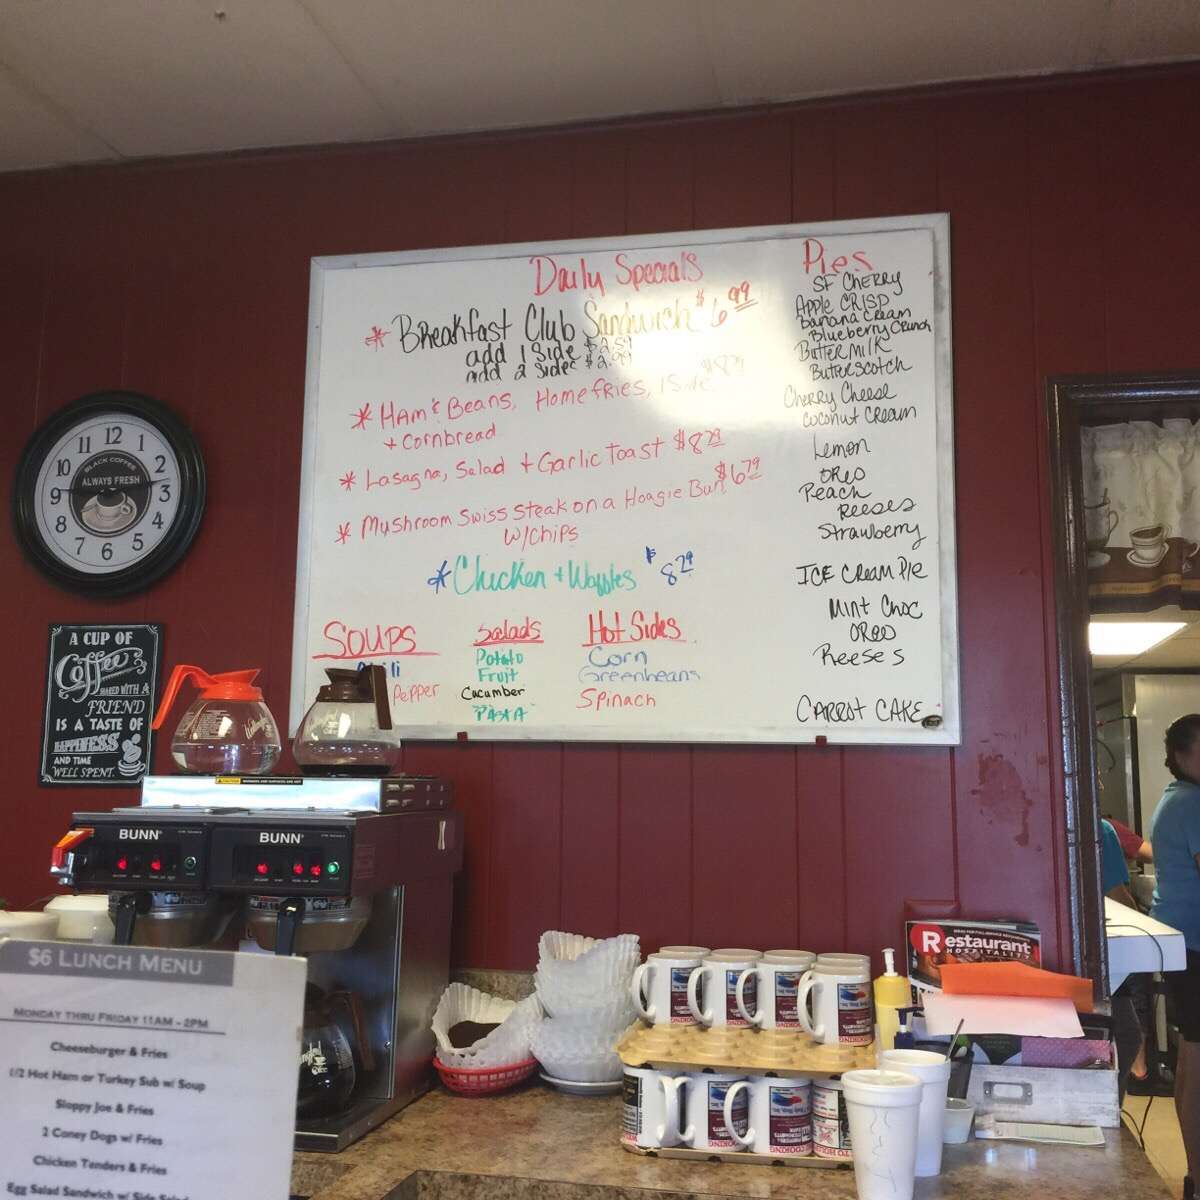 Daily Specials
* Breakfast Club Sandwich $6.99
add 1 side
add 2 sides
* Ham & Beans, Homefries, 1 Side
+ Cornbread
* Lasagna, Salad + Garlic Toast $8.79
* Mushroom Swiss Steak on a Hoagie Bun $6.79
w/chips
* Chicken + Waffles $8.29
Soups
Pepper
Salads
Potato
Fruit
Cucumber
Pasta
Hot Sides
Corn
Greenbeans
Spinach
Pies
SF Cherry
Apple Crisp
Banana Cream
Blueberry Crunch
Buttermilk
Butterscotch
Cherry Cheese
Coconut Cream
Lemon
Oreo
Peach
Reeses
Strawberry
Ice Cream Pie
Mint Choc
Oreo
Reeses
Carrot Cake
12
1
2
3
4
5
6
7
8
9
10
11
BLACK COFFEE
ALWAYS FRESH
A CUP OF
Coffee
SHARED WITH A
FRIEND
IS A TASTE OF
HAPPINESS
AND TIME
WELL SPENT.
BUNN
BUNN
$6 LUNCH MENU
MONDAY THRU FRIDAY 11AM - 2PM
Cheeseburger & Fries
1/2 Hot Ham or Turkey Sub w/ Soup
Sloppy Joe & Fries
2 Coney Dogs w/ Fries
Chicken Tenders & Fries
Egg Salad Sandwich w/ Side Salad
Restaurant
HOSPITALITY